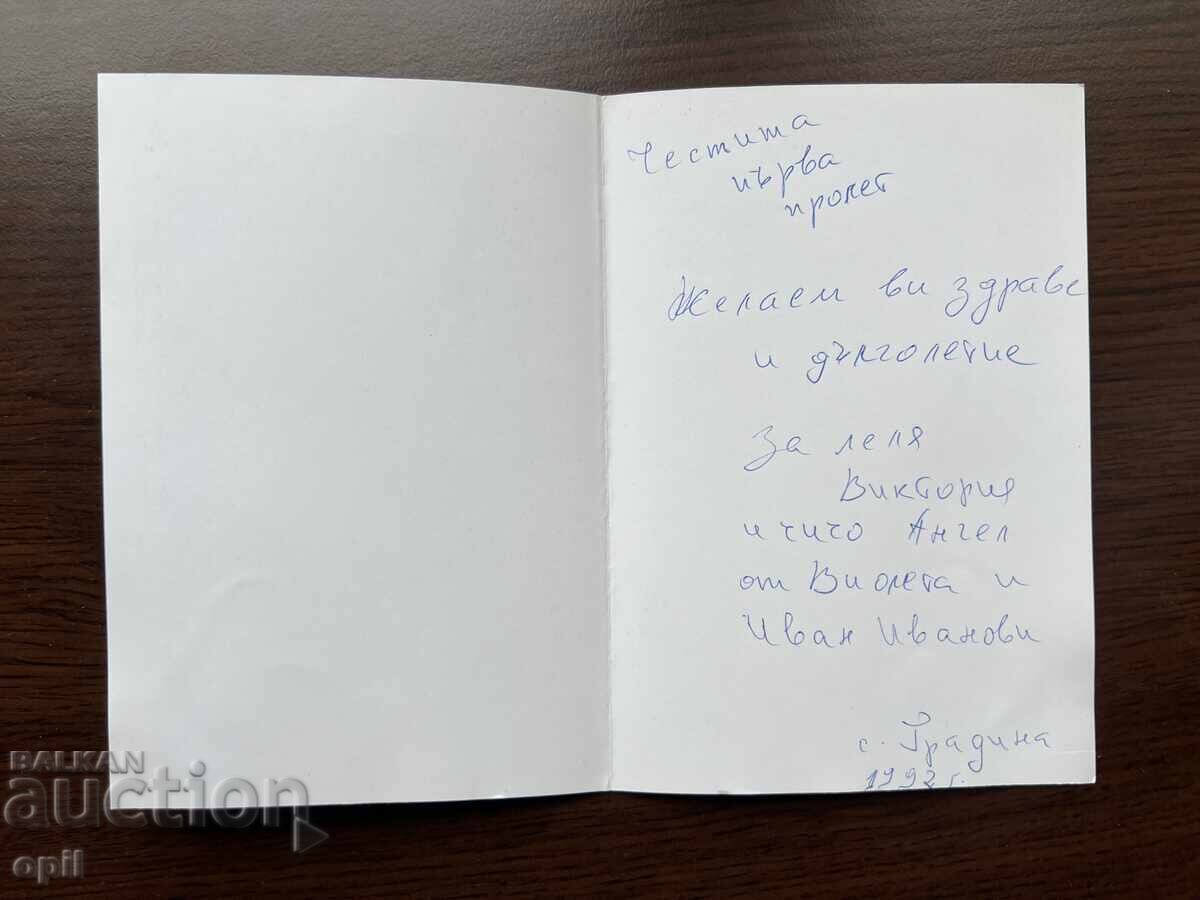 Честита
първа
пролет
Желаем ви здраве
и дълголетие
За леля
Виктория
и чичо Ангел
от Виолета и
Иван Иванови
с. Градина
1992 г.
BALKAN
auction
opil